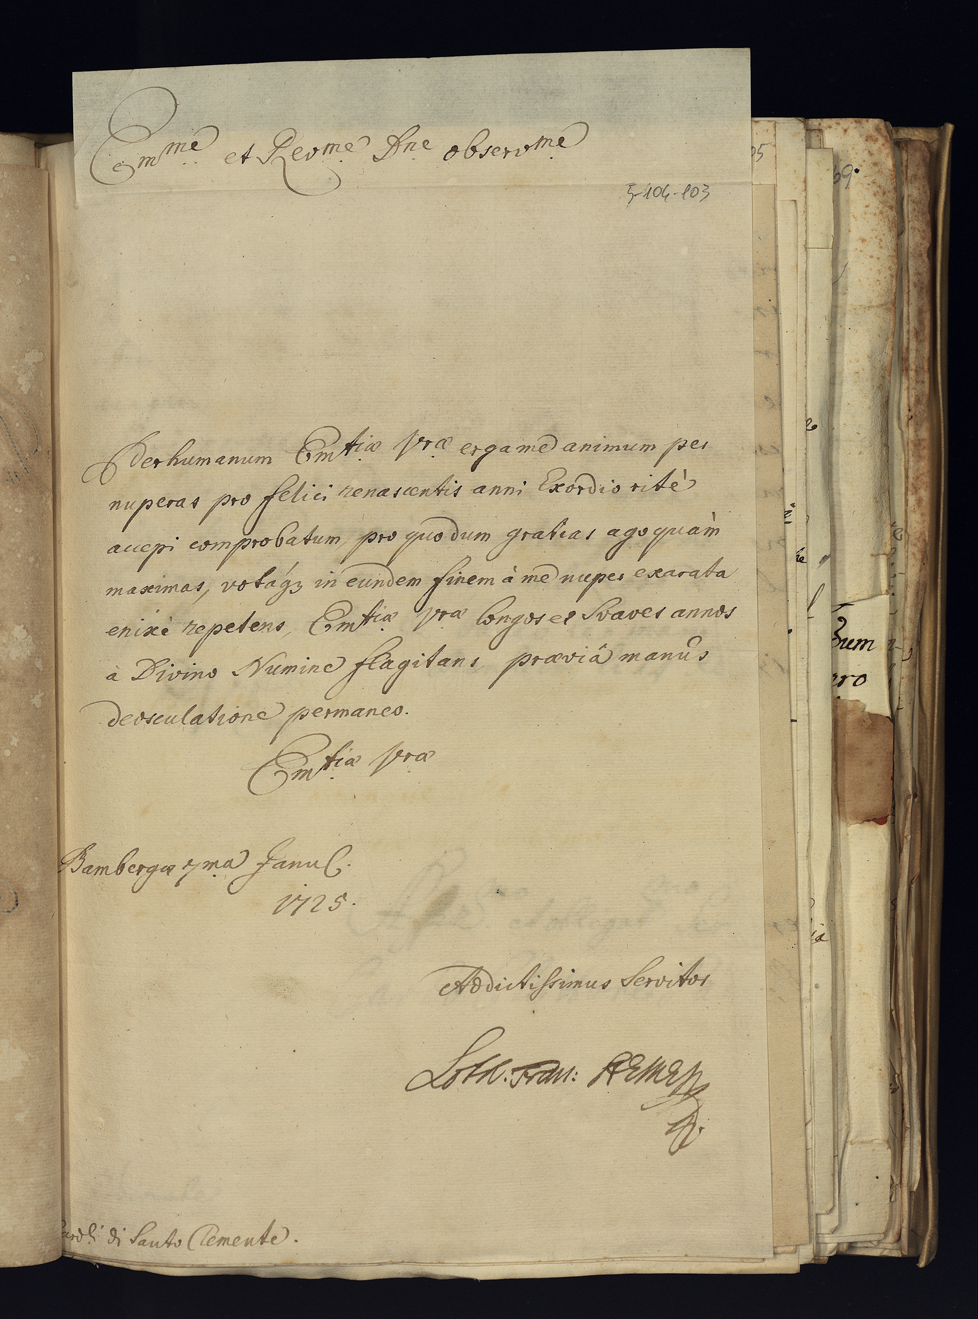 Em.me et Revme Dne observme
5-104-103
Perhumanum Emtiæ vræ erga me animum per
nuperas pro felici renascentis anni Exordio ritè
accepi comprobatum, pro quo dum gratias ago quàm
maximas, votáq3 in eundem finem à me nuper exarata
enixè repetens, Emtiæ vræ longos et suaves annos
à Divino Numine flagitans præviâ manûs
deosculatione permaneo.
Emtiæ vræ
Bambergæ 7ma Janu
1725.
Addictissimus Servitor
Loth. Fran:
di Santo Clemente.